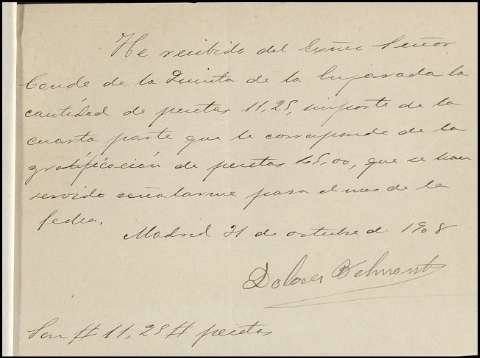 He recibido del Exmo Señor
Conde de la Quinta de la Enjarada la
cantidad de pesetas 11,25, importe de la
cuarta parte que le corresponde de la
gratificación de pesetas 45,00, que se han
servido señalarme para el mes de la
fecha.
Madrid 31 de octubre de 1908
Dolores
Son # 11,25 # pesetas